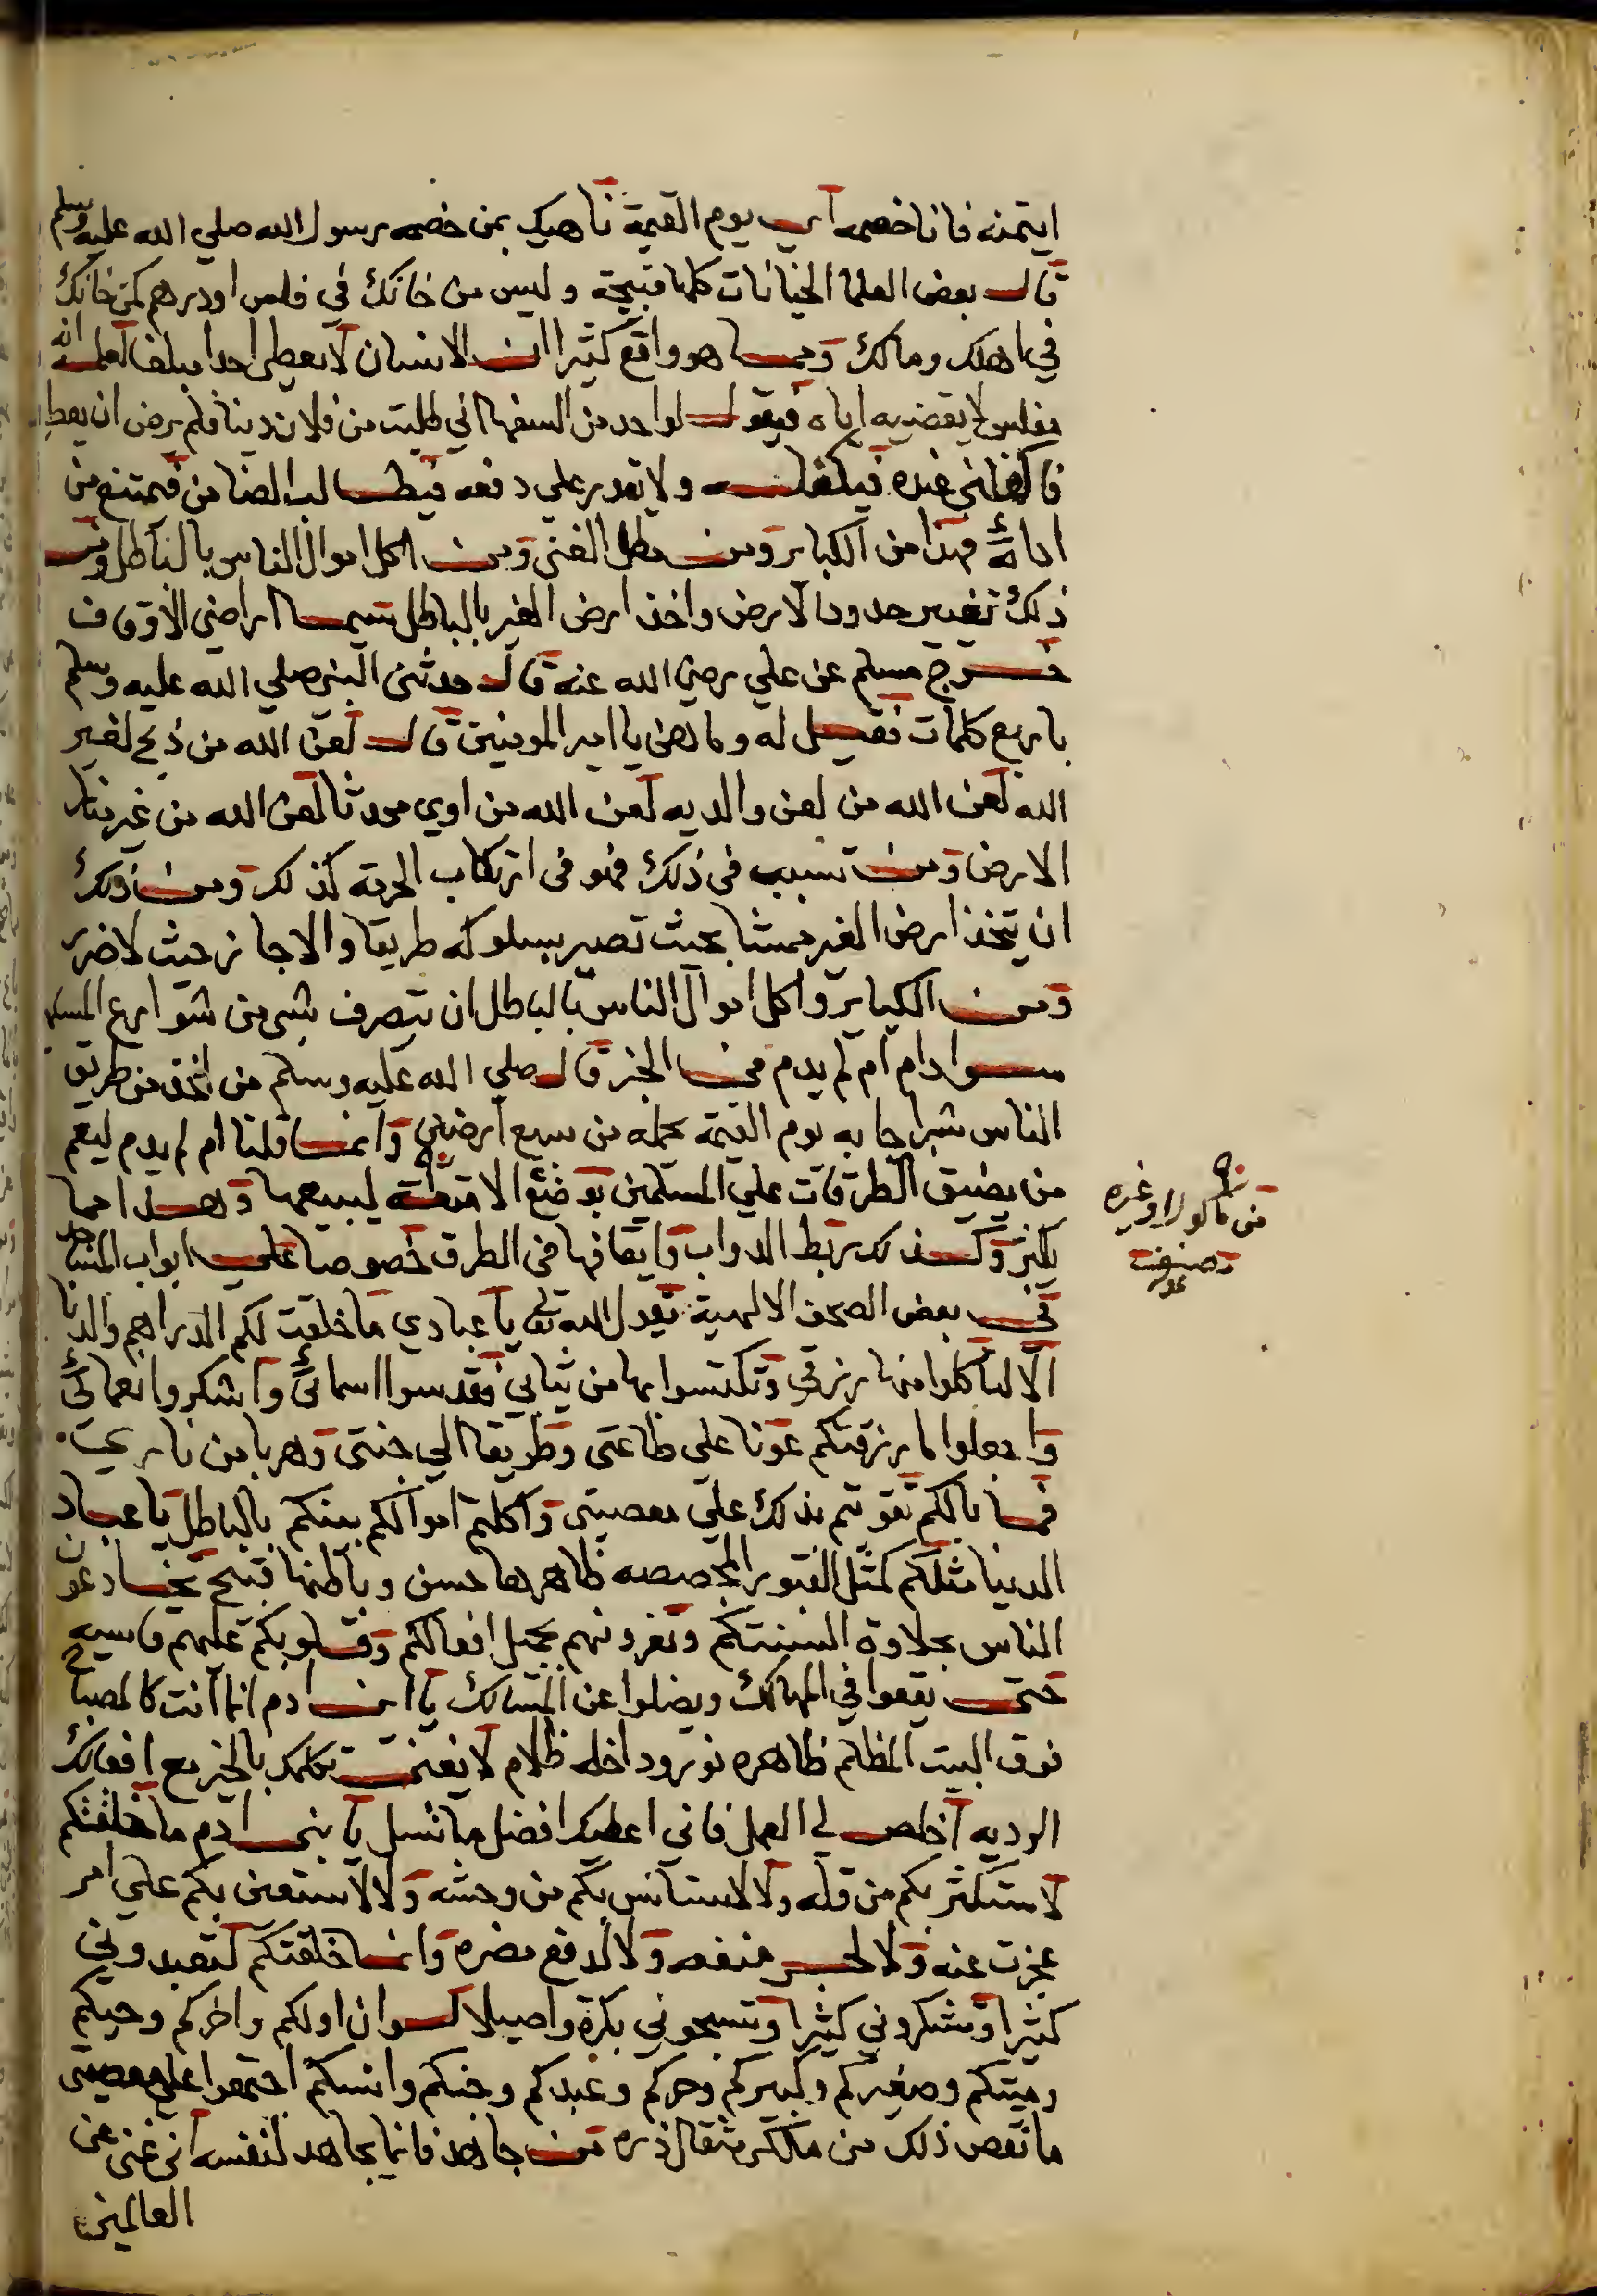 ايتمنه فانا خصمه اي يوم القيمة ناهيك بمن خصمه رسول الله صلي الله عليه وسلم
قال بعض العلما الخيانات كلها قبيحة وليس من خانك في فلس او درهم كمن خانك
في اهلك ومالك ومما هو واقع كثيرا ان الانسان لا يعطي احدا مبلغا لعلمه انه
مفلس لا يقضيه اياه فيقول لواحد من السفها اني طلبت من فلان دينا فلم يرض ان يعطي
فاكفلني عنده فيكفله ولا يقدر علي دفعه فيطالب الضامن فيمتنع من
ادائه فهذا من الكباير ومن مطل الغني ومن اكل اموال الناس بالباطل ومن
ذلك تغيير حدود الارض واخذ ارض الغير بالباطل سيما اراضي الاوقاف
خرج مسلم عن علي رضي الله عنه قال حدثني النبي صلي الله عليه وسلم
باربع كلمات فقيل له وما هن يا امير المومنين قال لعن الله من ذبح لغير
الله لعن الله من لعن والديه لعن الله من اوي محدثا لعن الله من غير منار
الارض ومن تسبب في ذلك فهو في ارتكاب الحرمة كذلك ومن ذلك
ان يتخذ ارض الغير ممشا بحيث تصير بسلوكه طريقا والا جاز حيث لا ضرر
ومن الكباير واكل اموال الناس بالباطل ان يتصرف بشي من شوارع المسلمين
سوا دام ام لم يدم ففي الخبر قال صلي الله عليه وسلم من اخذ من طريق
الناس شبرا جا به يوم القيمة يحمله من سبع ارضين وانما قلنا ام لم يدم ليعم
من يضيق الطرقات علي المسلمين بوضع الامتعة ليبيعها وهذا مما
يكثر وكذلك ربط الدواب وايقافها في الطرق خصوصا علي ابواب المساجد
في بعض الصحف الالهية يقول الله تعالي يا عبادي ما خلقت لكم الدراهم والدنا
الا لتاكلوا منها رزقي وتكتسوا بها من ثيابي فقدسوا اسمائي واشكروا نعمائي
واجعلوا ما رزقتكم عونا علي طاعتي وطريقا الي جنتي وهربا من نار
فما بالكم تقويتم بذلك علي معصيتي واكلتم اموالكم بينكم بالباطل يا عباد
الدنيا مثلكم كمثل القبور المجصصه ظاهرها حسن وباطنها قبيح تخادعون
الناس بحلاوة السنتكم وتغرونهم بجميل افعالكم وقلوبكم عليهم قاسيه
حتي يقعوا في المهالك ويضلوا عن المسالك يا ابن ادم انما انت كالمصباح
فوق البيت المظلم ظاهره نور وداخله ظلام لا يغنيك تكلمك بالخير مع افعالك
الرديه اخلص لي العمل فاني اعطيك افضل ما تسل يا بني ادم ما خلقتكم
لاستكثر بكم من قله ولا لاستانس بكم من وحشه ولا لاستعين بكم علي امر
عجزت عنه ولا لجر منفعه ولا لدفع مضره وانما خلقتكم لتعبدوني
كثيرا وتشكروني كثيرا وتسبحوني بكرة واصيلا لو ان اولكم واخركم وحيكم
وميتكم وصغيركم وكبيركم وحركم وعبدكم وجنكم وانسكم اجتمعوا علي معصيتي
ما نقص ذلك من ملكي مثقال ذره ومن جاهد فانما يجاهد لنفسه اني غني عن
العالمين
من ماكول او غيره